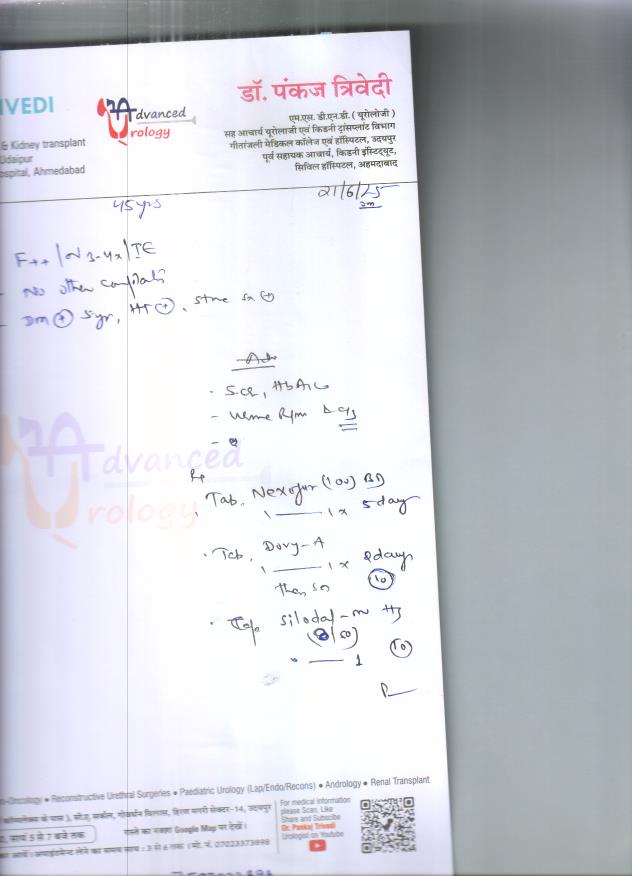 IVEDI
& Kidney transplant
Udaipur
ospital, Ahmedabad
Advanced
Urology
डॉ. पंकज त्रिवेदी
एम.एस. डी.एन.बी. ( यूरोलोजी )
सह आचार्य यूरोलाजी एवं किडनी ट्रांसप्लांट विभाग
गीतांजली मेडिकल कॉलेज एवं हॉस्पिटल, उदयपुर
पूर्व सहायक आचार्य, किडनी इंस्टिट्यूट,
सिविल हॉस्पिटल, अहमदाबाद
45 yrs
21/6/25
F++ | N 3-4x | IE
No other
DM + 5yr, HT +, stone sx +
Adv
S.Cr, HbA1c
Urine R/m & C/s
Advanced
Urology
Rx
Tab. (100) BD
1 — 1 x 5day
Tab. Doxy-A
1 — 1 x 2days
then SOS
10
Cap Silodal-M HS
(8/50)
0 — 1
10
o-Oncology • Reconstructive Urethral Surgeries • Paediatric Urology (Lap/Endo/Recons) • Andrology • Renal Transplant
सेक्टर-14, उदयपुर
सायं 5 से 7 बजे तक
रास्ते का नक्शा Google Map पर देखें।
समय सायं : 3 से 6 तक ( मो. नं. 07023373898
For medical information
please Scan, Like
Share and Subscibe
Dr. Pankaj Trivedi
Urologist on Youtube